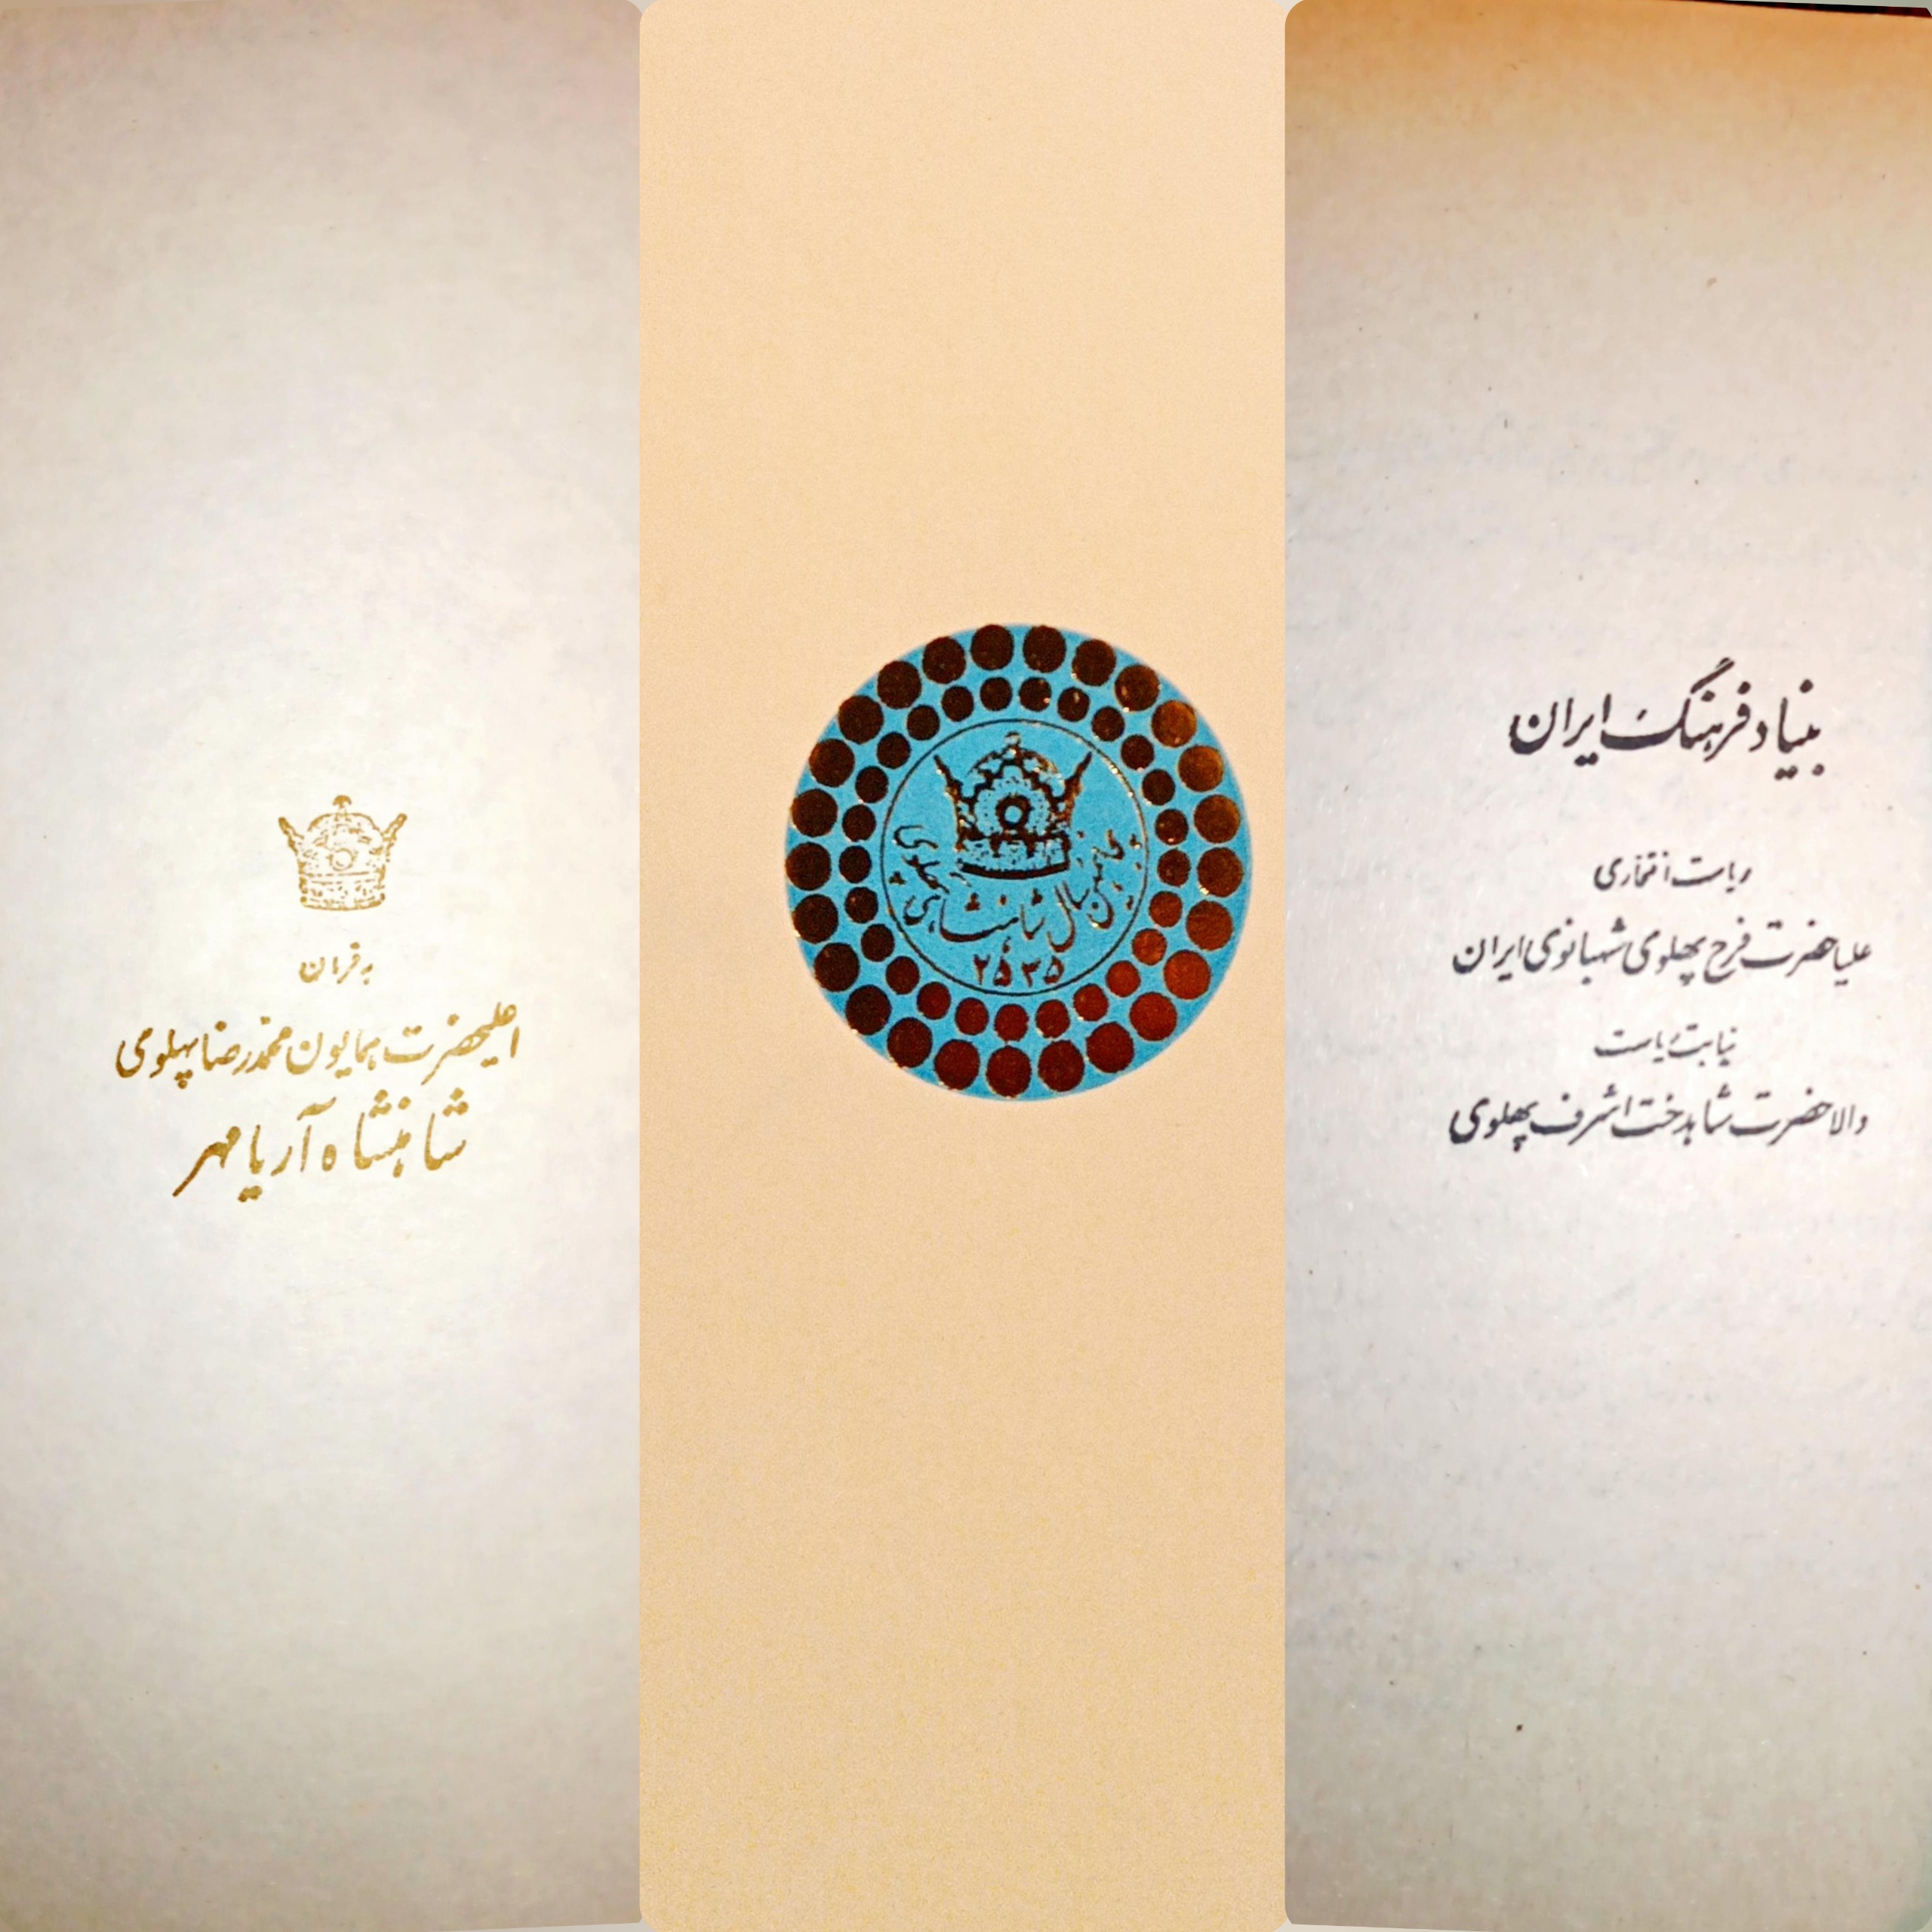 به فرمان
اعلیحضرت همایون محمدرضا پهلوی
شاهنشاه آریامهر
پنجاهمین سال شاهنشاهی پهلوی
۲۵۳۵
بنیاد فرهنگ ایران
ریاست افتخاری
علیاحضرت فرح پهلوی شهبانوی ایران
نیابت ریاست
والاحضرت شاهدخت اشرف پهلوی